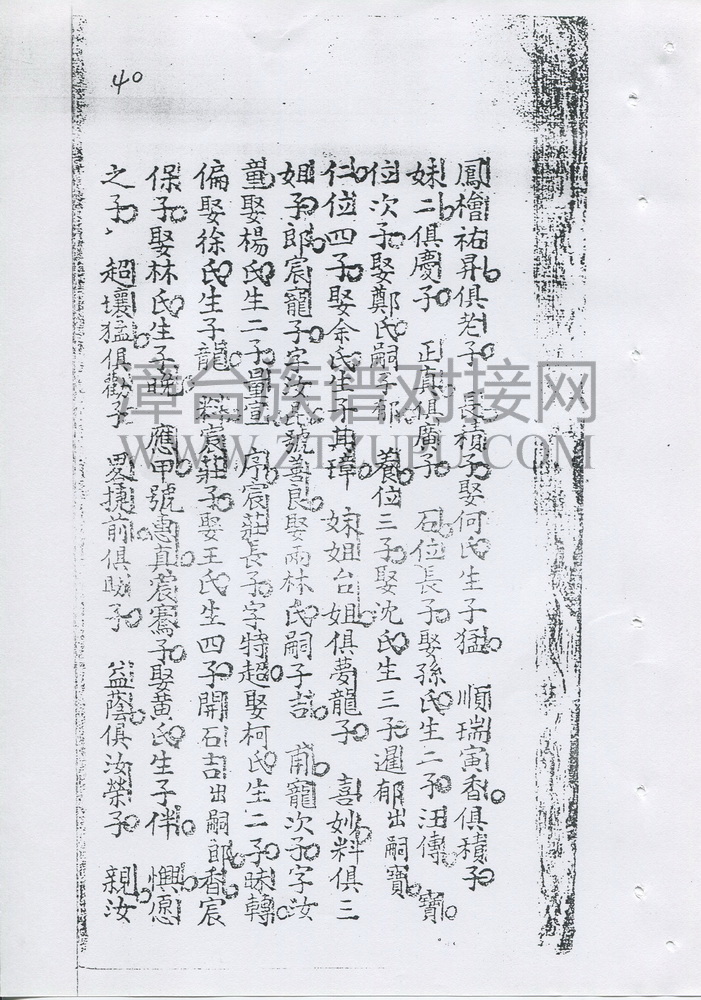 40
鳳檜祐昇俱老子 長積子娶何氏生子猛 順瑞寅香俱積子
妹二俱慶子 正真俱廣子 石位長子娶孫氏生二子汪傳 寶
位次子娶鄭氏嗣子郁 養位三子娶沈氏生三子暹郁出嗣寶
仁位四子娶余氏生子其璋 妹姐台姐俱夢龍子 喜妙料俱三
姐子郎宸寵子字汝 號善良娶兩林氏嗣子吉 甫寵次子字汝
童娶楊氏生二子量宣 序宸莊長子字特超娶柯氏生二子昧轉
偏娶徐氏生子龍 宸莊子娶王氏生四子開石吉出嗣郎香宸
保子娶林氏生子晚 應甲號惠真宸騫子娶黄氏生子伴 懊愿
之子 超壤猛俱勸子 畧捷前俱 子 益蔭俱汝榮子 親汝
漳台族谱对接网
WWW.ZTZUPU.COM